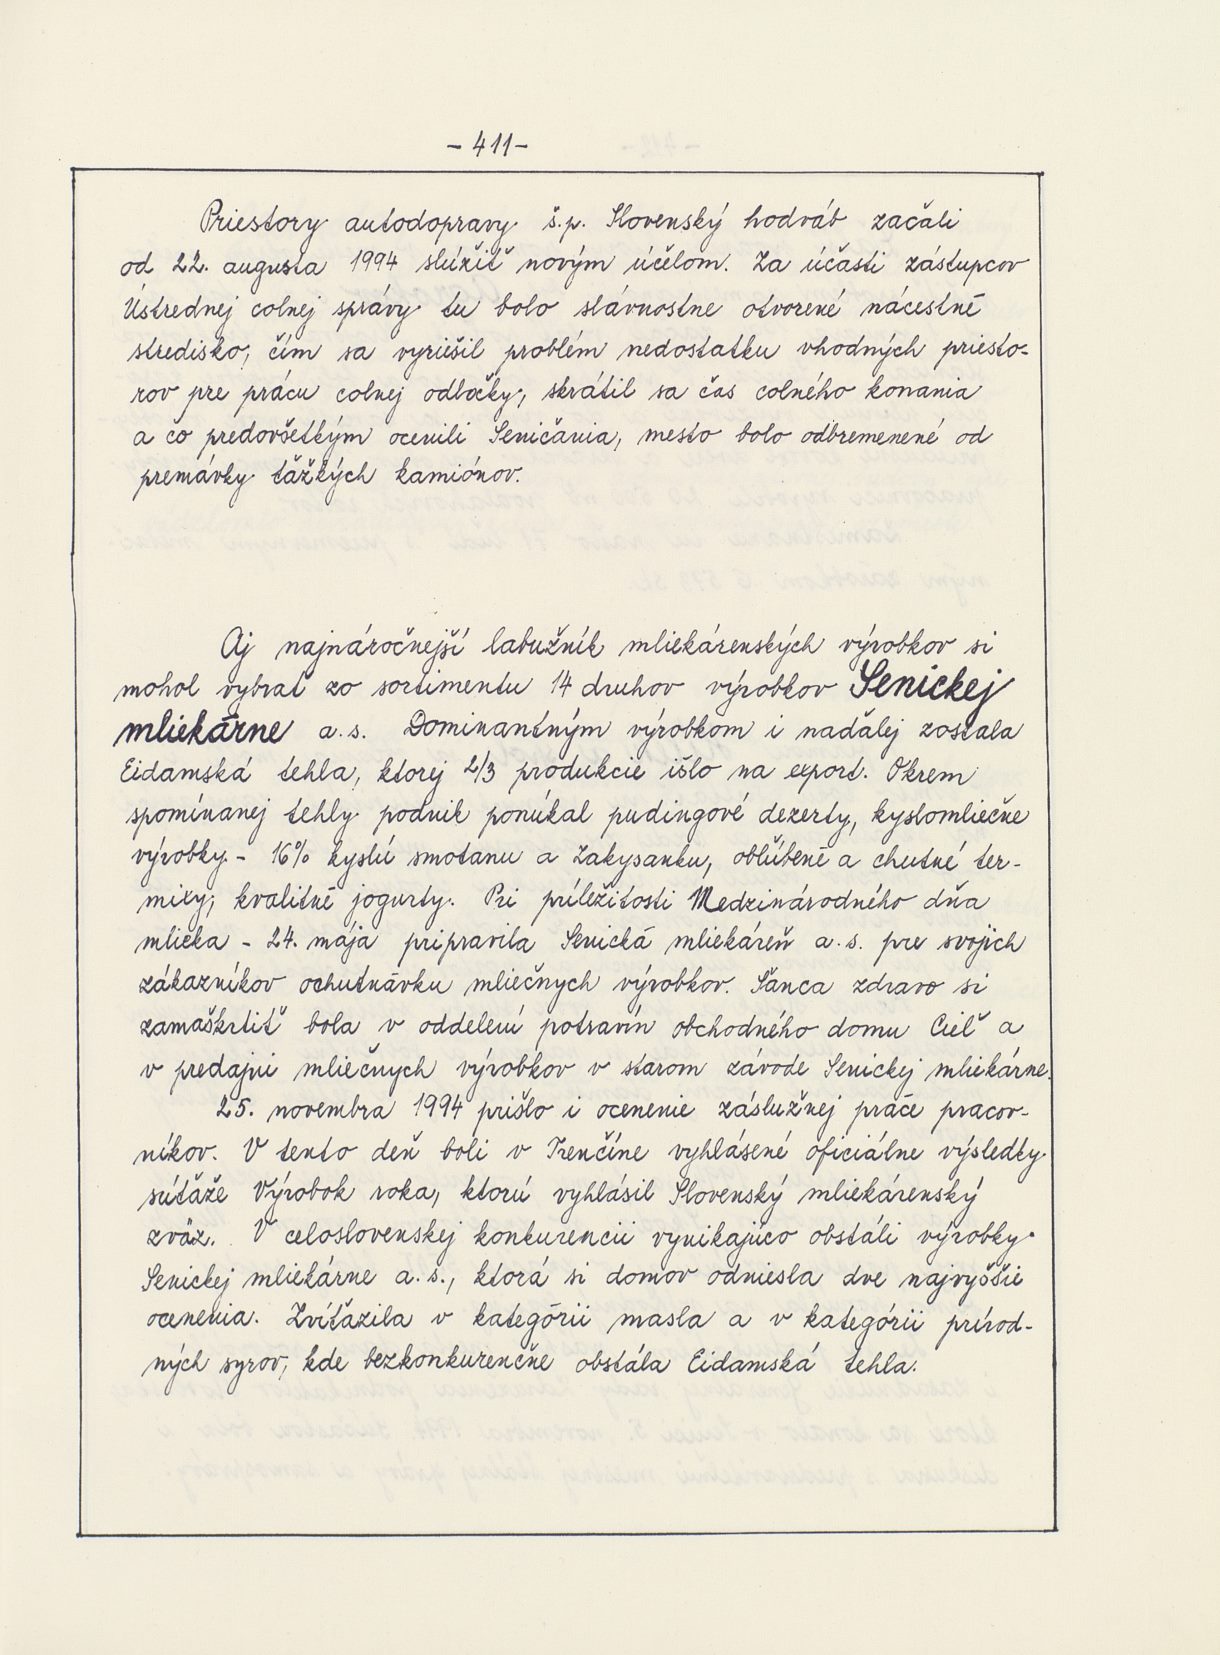 - 411 -
Priestory autodopravy š.p. Slovenský hodváb začali
od 22. augusta 1994 slúžiť novým účelom. Za účasti zástupcov
Ústrednej colnej správy tu bolo slávnostne otvorené nácestné
stredisko, čím sa vyriešil problém nedostatku vhodných priesto-
rov pre prácu colnej odbočky, skrátil sa čas colného konania
a čo predovšetkým ocenili Seničania, mesto bolo odbremenené od
premávky ťažkých kamiónov.
Aj najnáročnejší labužník mliekárenských výrobkov si
mohol vybrať zo sortimentu 14 druhov výrobkov Senickej
mliekárne a.s. Dominantným výrobkom i naďalej zostala
Eidamská tehla, ktorej 2/3 produkcie išlo na export. Okrem
spomínanej tehly podnik ponúkal pudingové dezerty, kyslomliečne
výrobky - 16% kyslú smotanu a Zakysanku, obľúbené a chutné ter-
mixy, kvalitné jogurty. Pri príležitosti Medzinárodného dňa
mlieka - 24. mája pripravila Senická mliekáreň a.s. pre svojich
zákazníkov ochutnávku mliečnych výrobkov. Šanca zdravo si
zamaškrtiť bola v oddelení potravín obchodného domu Cieľ a
v predajni mliečnych výrobkov v starom závode Senickej mliekárne.
25. novembra 1994 prišlo i ocenenie záslužnej práce pracov-
níkov. V tento deň boli v Trenčíne vyhlásené oficiálne výsledky
súťaže Výrobok roka, ktorú vyhlásil Slovenský mliekárenský
zväz. V celoslovenskej konkurencii vynikajúco obstáli výrobky
Senickej mliekárne a.s., ktorá si domov odniesla dve najvyššie
ocenenia. Zvíťazila v kategórii masla a v kategórii prírod-
ných syrov, kde bezkonkurenčne obstála Eidamská tehla.